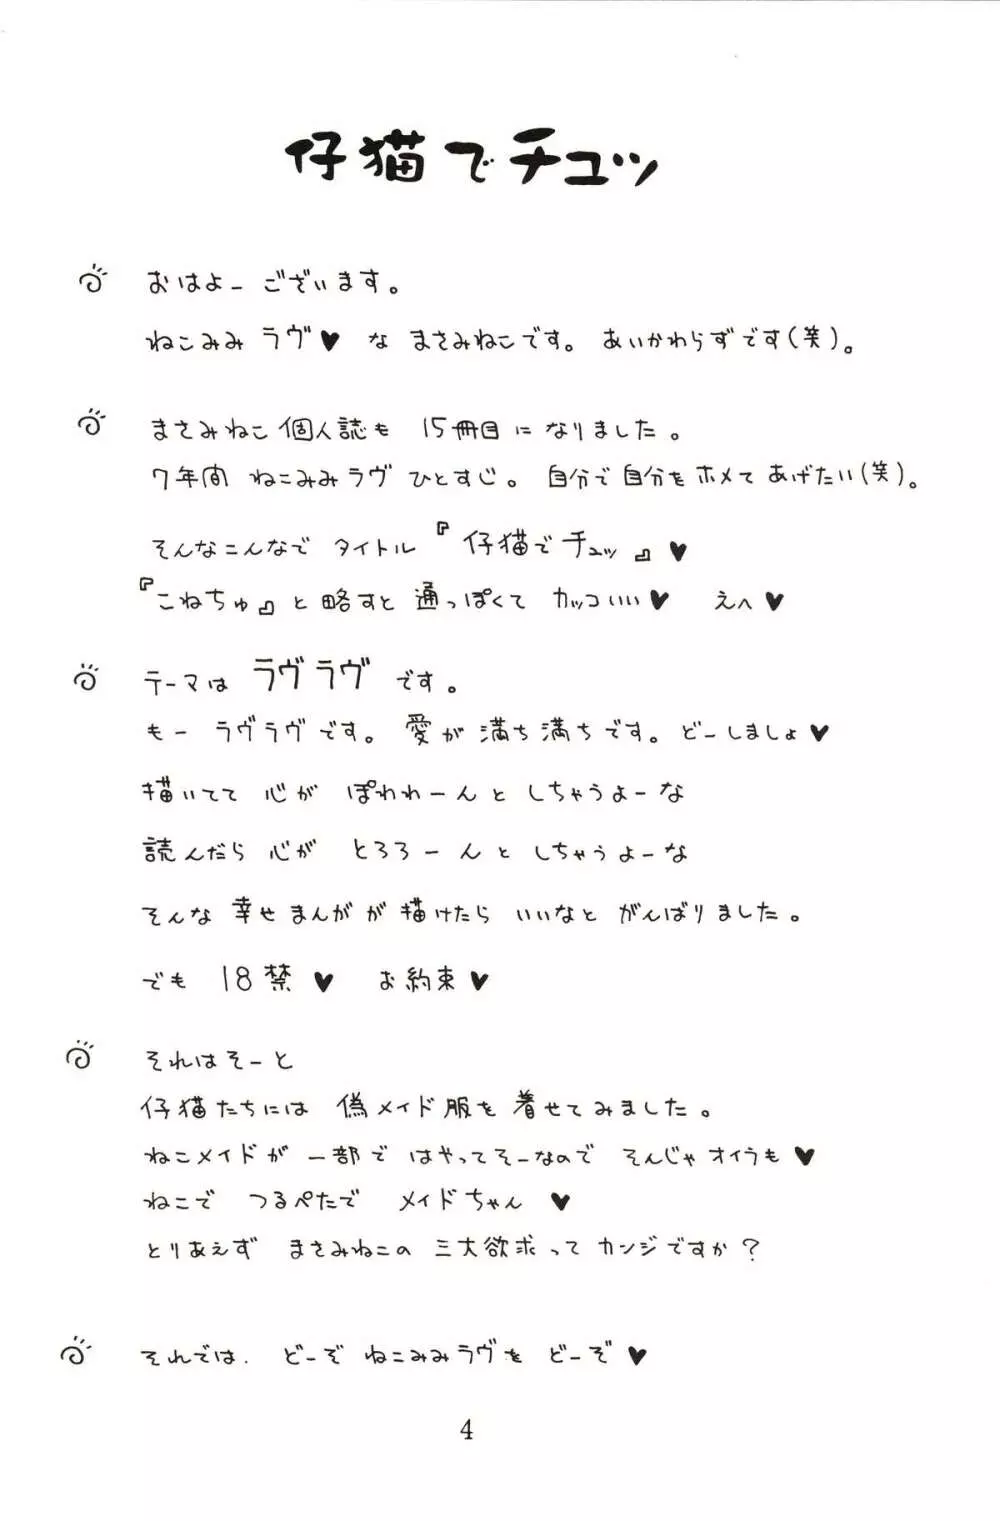 仔猫でチュッ
おはよーございます。
ねこみみラヴ♥な まさみねこです。あいかわらずです(笑)。
まさみねこ個人誌も 15冊目になりました。
7年間 ねこみみラヴ ひとすじ。自分で自分をホメてあげたい(笑)。
そんなこんなで タイトル『仔猫でチュッ』♥
『こねちゅ』と略すと通っぽくて カッコいい♥ えへ♥
テーマは ラヴラヴです。
もー ラヴラヴです。愛が満ち満ちです。どーしましょ♥
描いてて 心が ぽわわーんと しちゃうよーな
読んだら 心が とろろーんと しちゃうよーな
そんな 幸せまんがが描けたら いいなと がんばりました。
でも 18禁♥ お約束♥
それはそーと
仔猫たちには 偽メイド服を 着せてみました。
ねこメイドが 一部で はやってそーなので そんじゃオイラも♥
ねこで つるぺたで メイドちゃん♥
とりあえず まさみねこの 三大欲求って カンジですか?
それでは. どーぞ ねこみみラヴを どーぞ♥
4